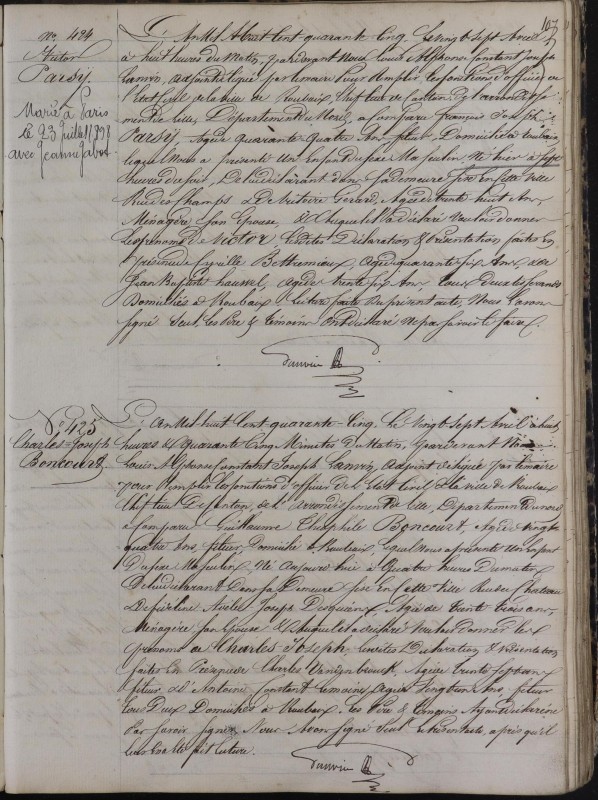 107
No. 424
Victor
Parsy.
Marié à Paris
le 23 juillet 1898
avec Jeanne Jabot
L'an Mil huit Cent quarante Cinq, le vingt Sept Avril
à huit heures du Matin, pardevant Nous Louis Alphonse Constant Joseph
Lanvin, adjoint délégué par le maire pour remplir les fonctions d'officier de
l'Etat Civil de la ville de Roubaix, Chef lieu de Canton de l'arrondisse-
ment de Lille, Département du Nord, a comparu François Joseph
Parsy, Agé de quarante quatre Ans, Domicilié à Roubaix
lequel Nous a présenté Un Enfant du sexe Masculin Né hier à sept
heures du soir, De lui déclarant dans sa demeure sise en Cette Ville
Rue des Champs & De Victoire Gerard, Agée de trente huit Ans
Ménagère Son Epouse, & Auquel il a déclaré Vouloir donner
les prénoms de Victor. Lesdites Déclaration & Présentation faites En
présence de Cyrille Bettremieux, Agé de quarante six Ans, & De
Jean Baptiste hauwel, Agé de trente six Ans, tous deux
Domiciliés à Roubaix. Lecture faite du présent acte, Nous l'avons
signé Seul, les Père & témoins Ont déclaré Ne pas savoir le faire.
Lanvin
No. 425
Charles-Joseph
Boncourt
L'an Mil huit Cent quarante Cinq, Le Vingt Sept Avril à huit
heures & Quarante Cinq Minutes du Matin, pardevant Nous
Louis Alphonse Constant Joseph Lanvin, adjoint délégué par le maire
pour Remplir les fonctions d'officier de l'Etat Civil de la ville de Roubaix
Chef lieu De Canton, de l'arrondissement de Lille, Département du nord
a Comparu Guillaume Théophile Boncourt, Agé de vingt
quatre Ans, fileur, Domicilié à Roubaix, lequel Nous a présenté Un Enfant
Du sexe Masculin, Né Aujourd'hui à Quatre heures Du matin
De lui déclarant Dans sa Demeure sise en Cette Ville Rue du Chateau
& De Joseph Agée de Trente trois ans
Ménagère Son Epouse & Auquel il a déclaré Vouloir donner les
prénoms de Charles Joseph, lesdites Déclaration & Présentation
faites En Présence de Charles Agé de trente sept ans
fileur & d'Antoine Constant Lemaire, Agé de Vingt un Ans, fileur
tous Deux Domiciliés à Roubaix. Les Père & témoins Ayant déclaré ne
Pas savoir signer Nous Avons signé Seul le Présent acte, après qu'il
leur En a été fait lecture.
Lanvin